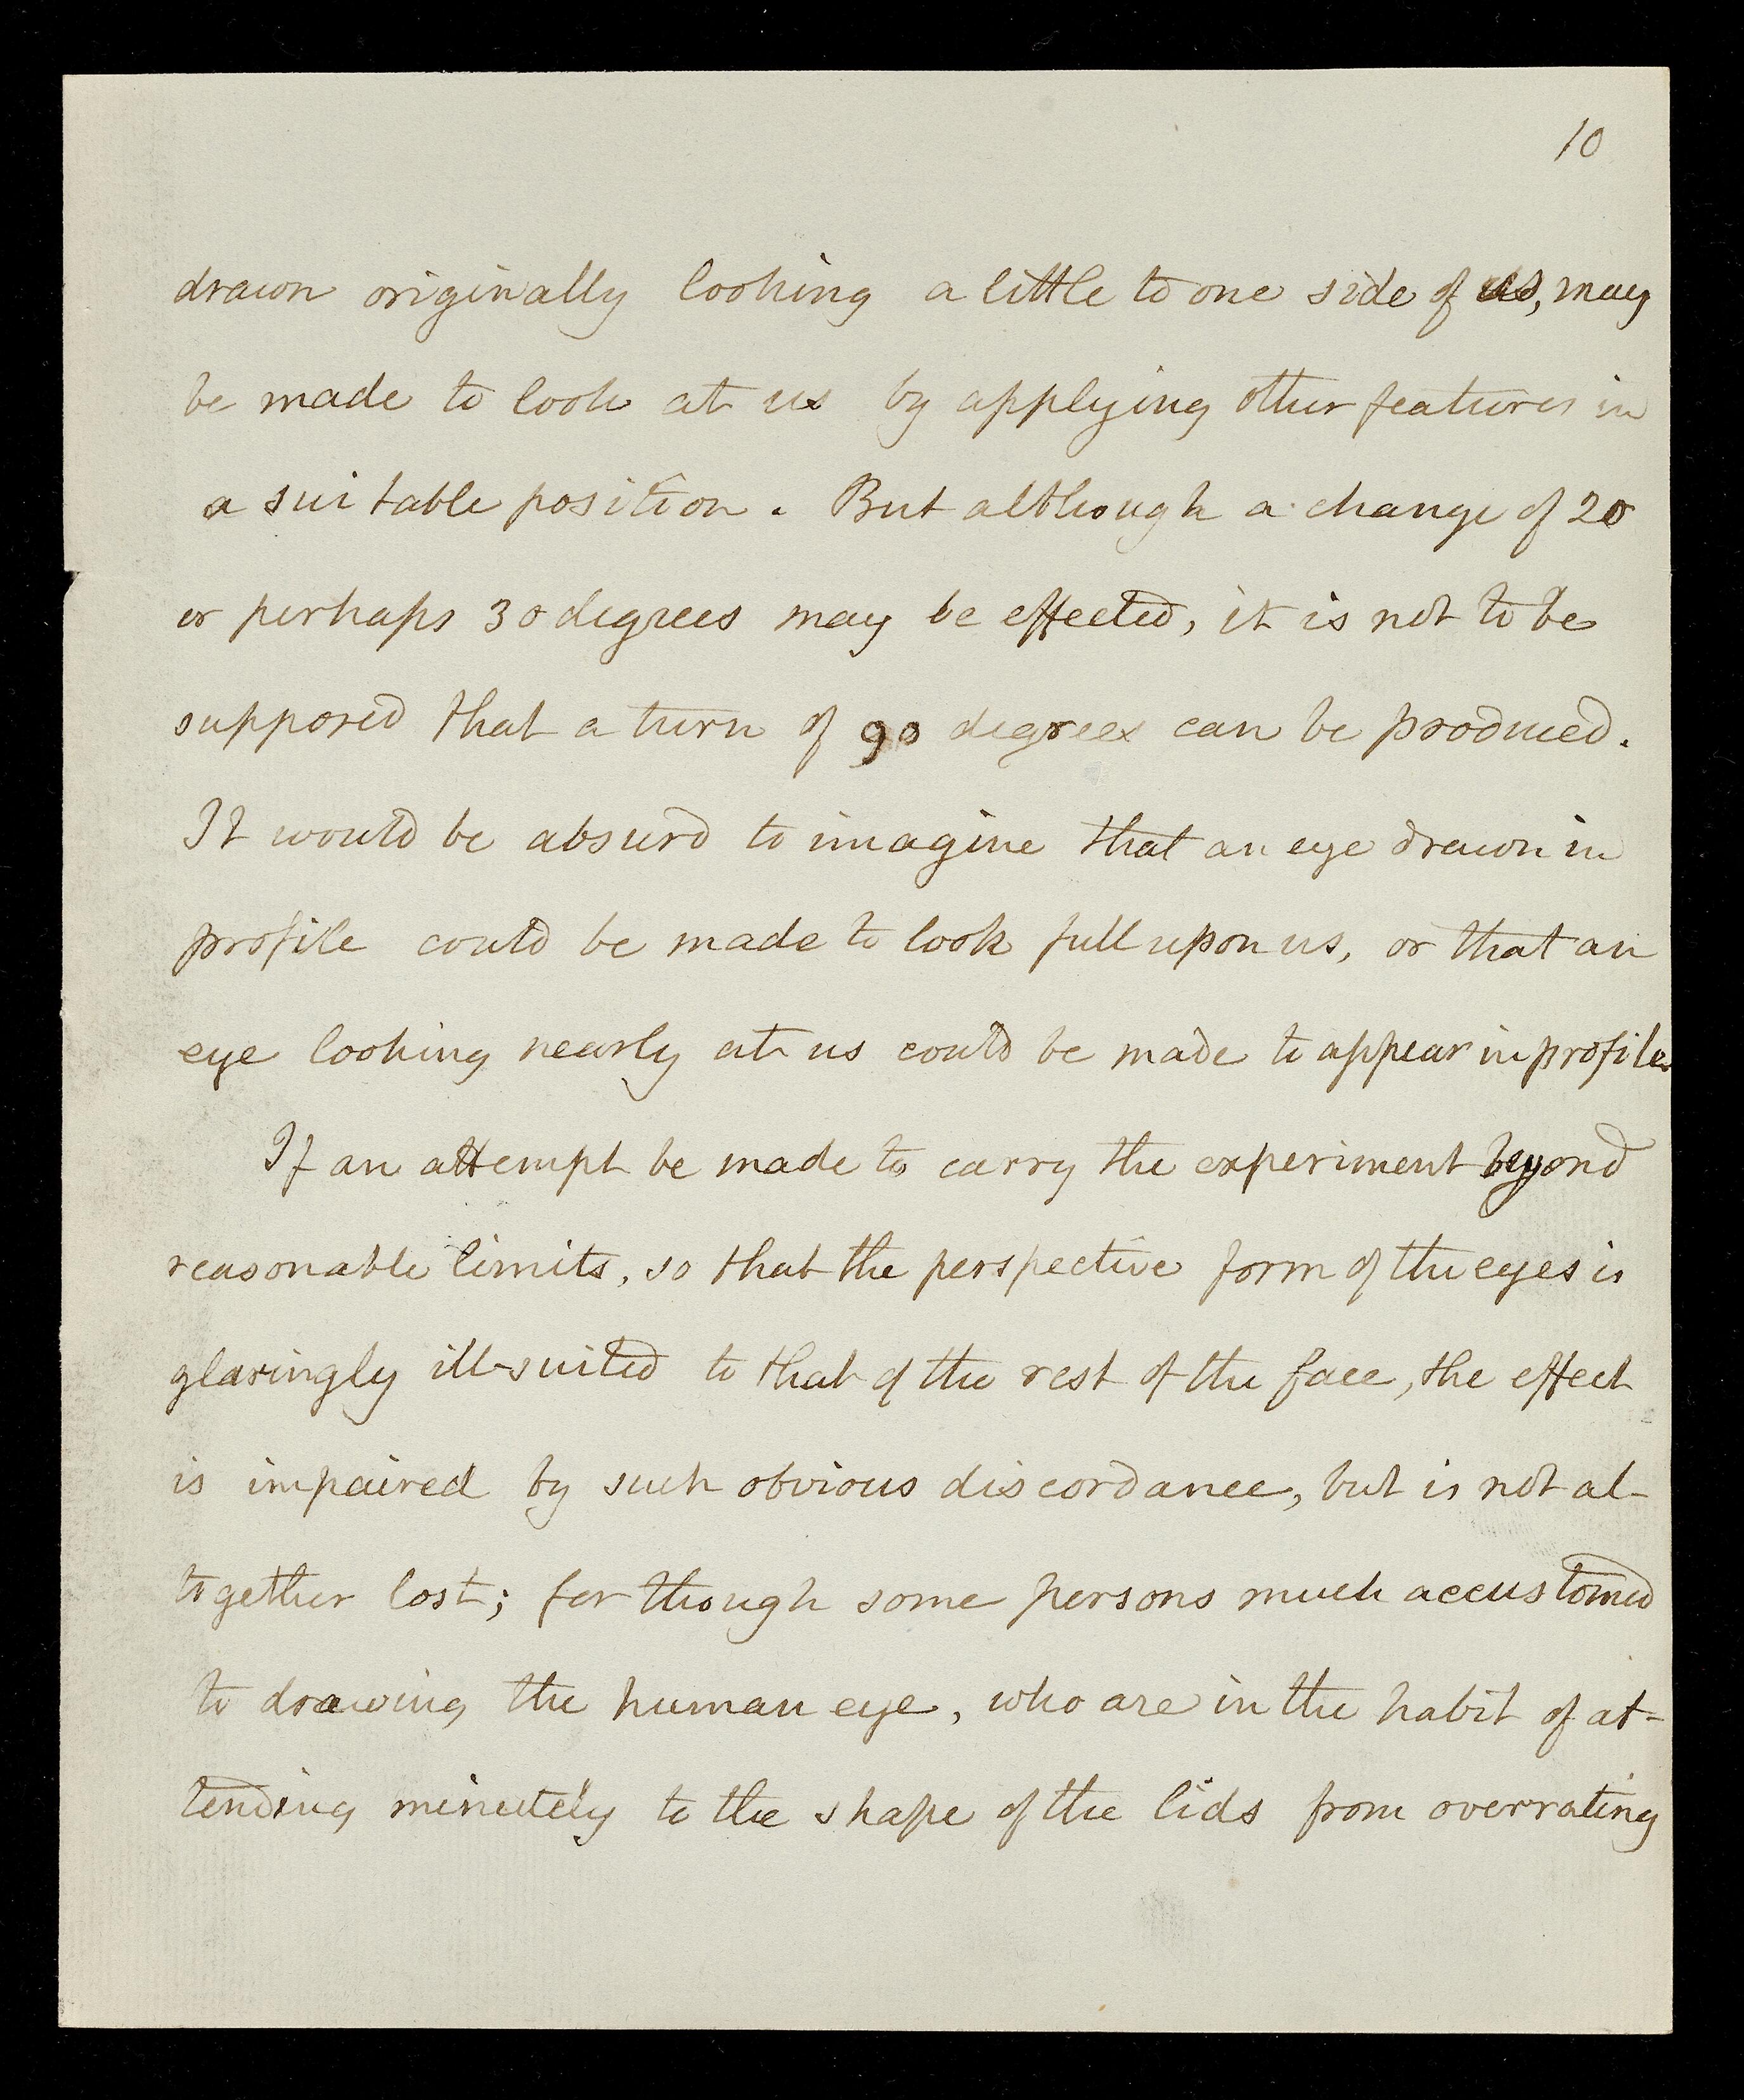 10
drawn originally looking a little to one side of us, may
be made to look at us by applying other features in
a suitable position. But although a change of 20
or perhaps 30 degrees may be effected, it is not to be
supposed that a turn of 90 degrees can be produced.
It would be absurd to imagine that an eye drawn in
profile could be made to look full upon us, or that an
eye looking nearly at us could be made to appear in profile.
If an attempt be made to carry the experiment beyond
reasonable limits, so that the perspective form of the eyes is
glaringly ill-suited to that of the rest of the face, the effect
is impaired by such obvious discordance, but is not al-
together lost; for though some persons much accustomed
to drawing the human eye, who are in the habit of at-
tending minutely to the shape of the lids from overrating